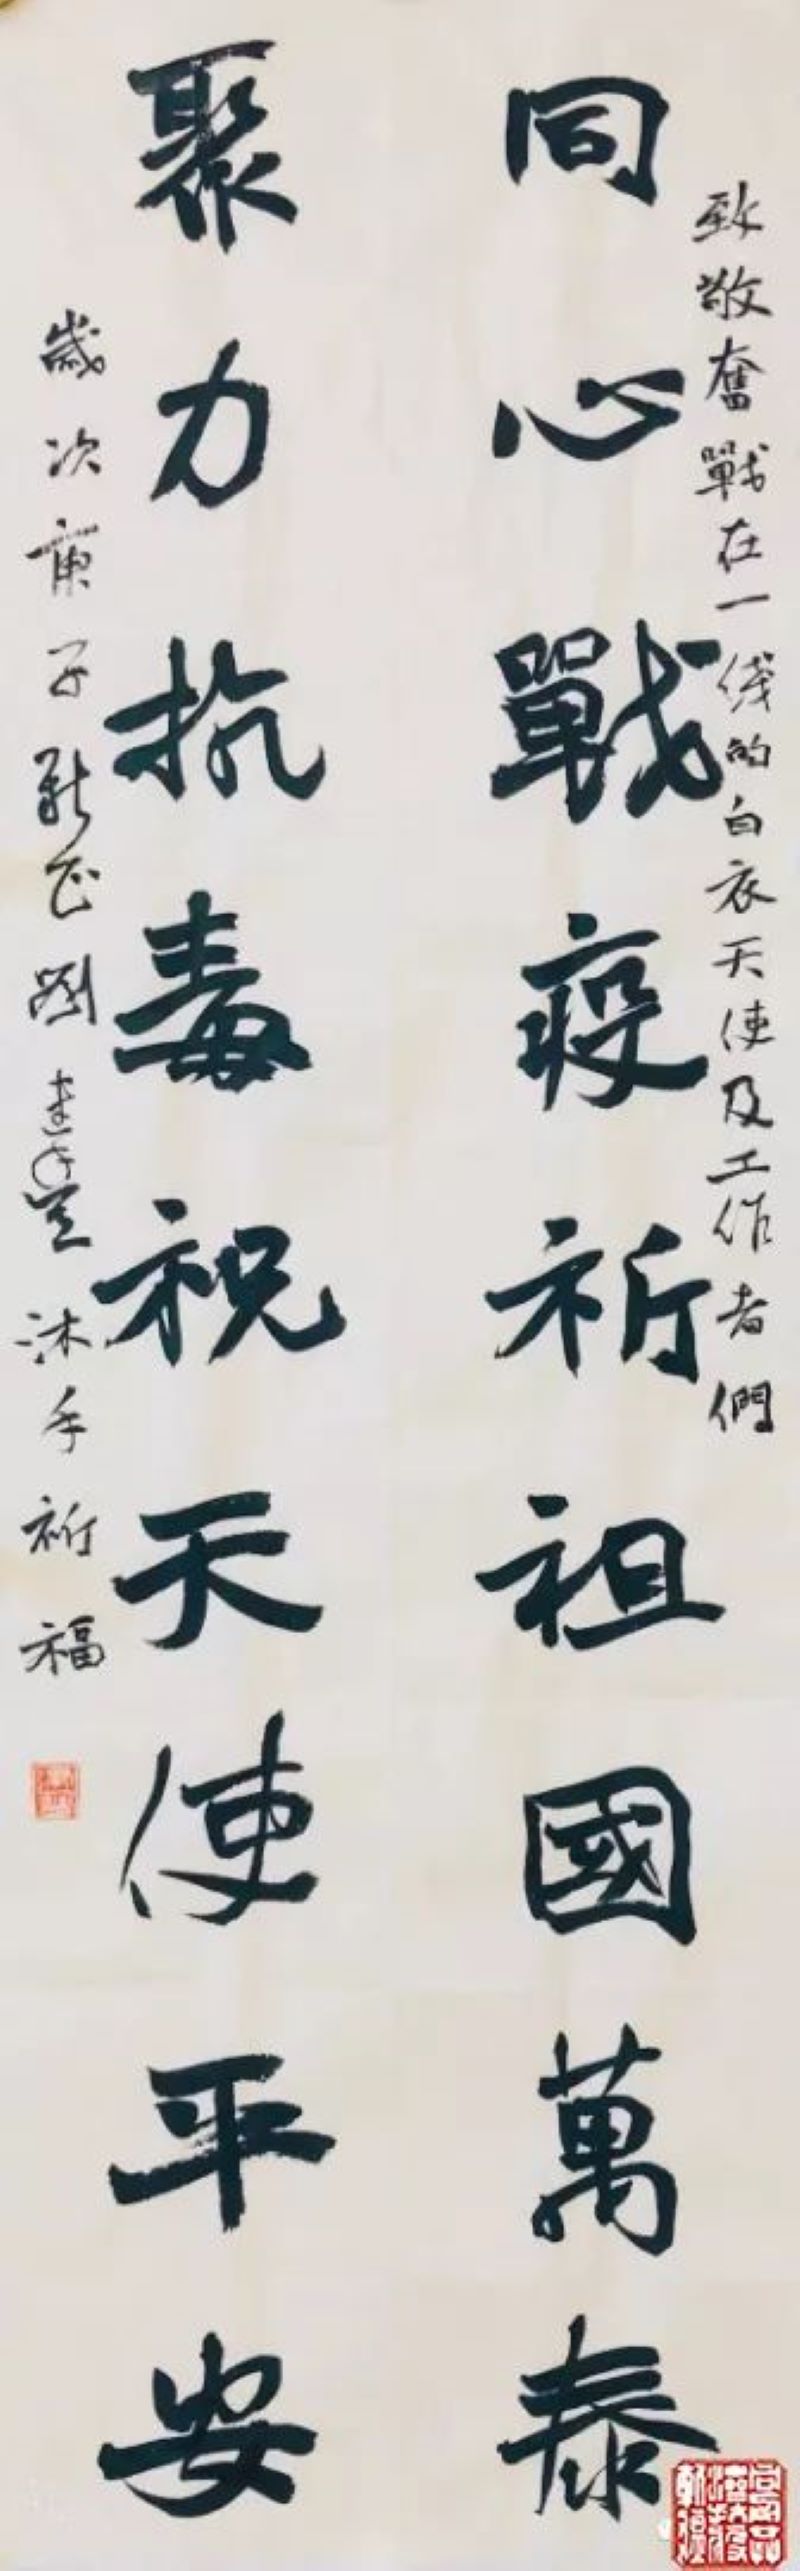 致敬奮戰在一线的白衣天使及工作者們
同心戰疫祈祖國萬泰
聚力抗毒祝天使平安
歲次庚子新正劉建 沐手祈福